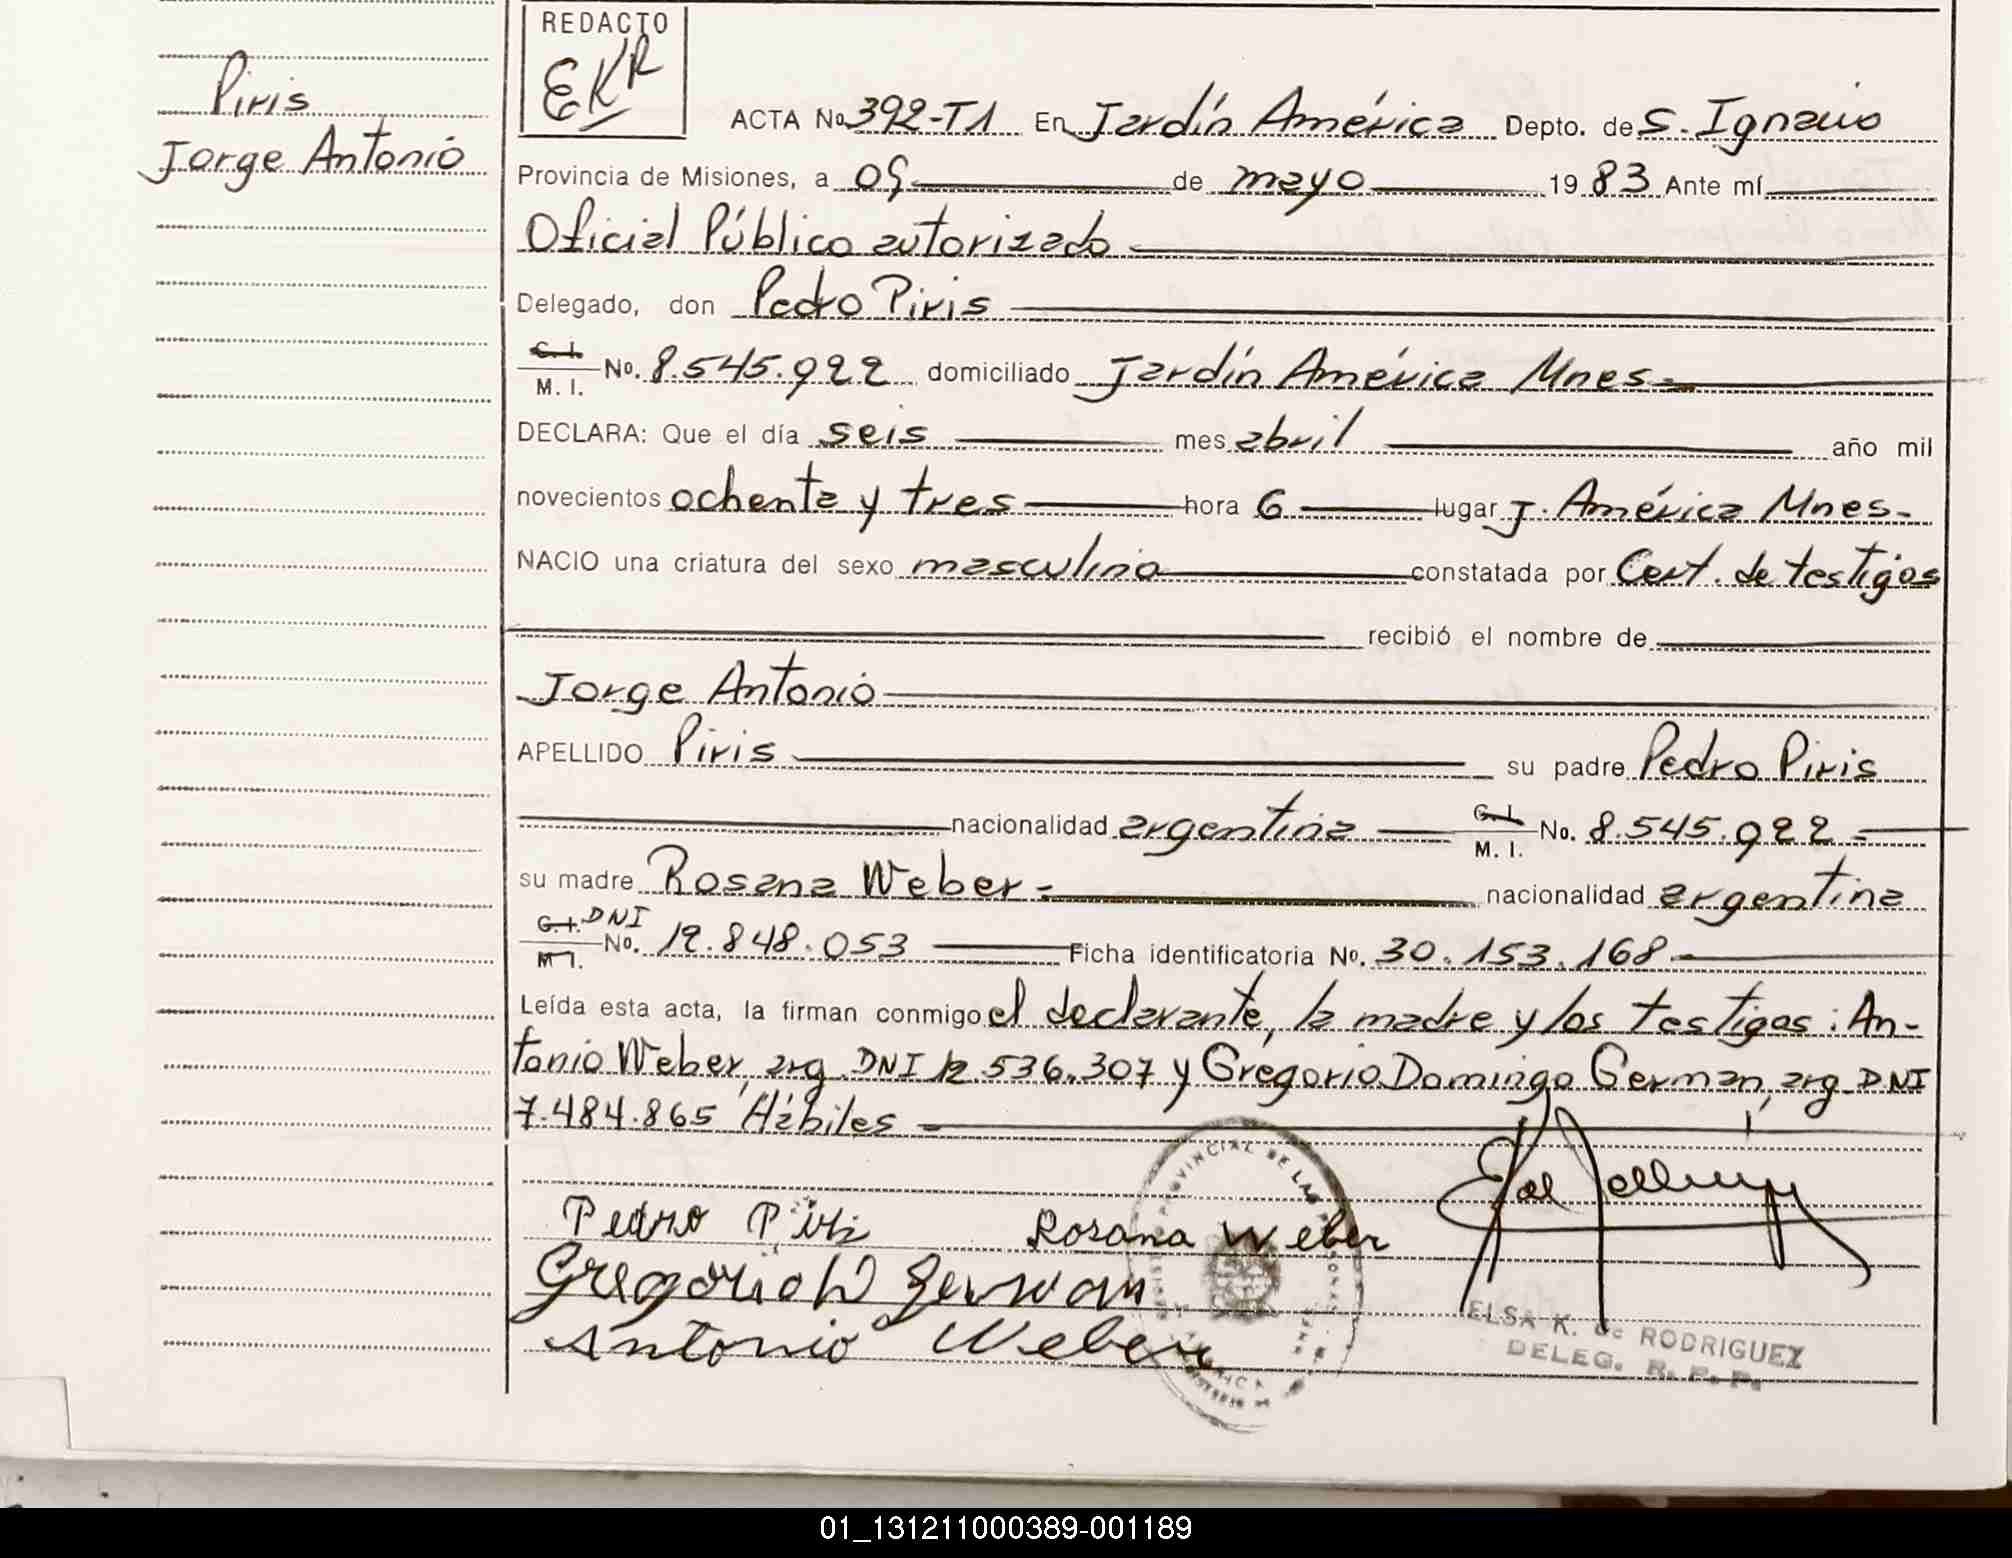 REDACTO
EKR
Piris
Jorge Antonio
ACTA No. 392-T1 En Jardín América Depto. de S. Ignacio
Provincia de Misiones, a 09 de mayo 1983 Ante mí
Oficial Público autorizado
Delegado, don Pedro Piris
C. I.
M. I. No. 8.545.922 domiciliado Jardín América Mnes
DECLARA: Que el día seis mes abril año mil
novecientos ochenta y tres hora 6 lugar J. América Mnes-
NACIO una criatura del sexo masculino constatada por Cert. de testigos
recibió el nombre de
Jorge Antonio
APELLIDO Piris su padre Pedro Piris
nacionalidad argentina C. I. M. I. No. 8.545.922
su madre Rosana Weber nacionalidad argentina
C. I. M. I. DNI No. 12.848.053 Ficha identificatoria No. 30.153.168
Leída esta acta, la firman conmigo el declarante, la madre y los testigos: An-
tonio Weber, arg. DNI 12.536.307 y Gregorio Domingo Germán, arg. DNI
7.484.865 Hábiles
Pedro Piris Rosana Weber
Gregorio D German
Antonio Weber
PROVINCIAL DE LAS PERSONAS
ELSA K. de RODRIGUEZ
DELEG. R. P. P.
01_131211000389-001189